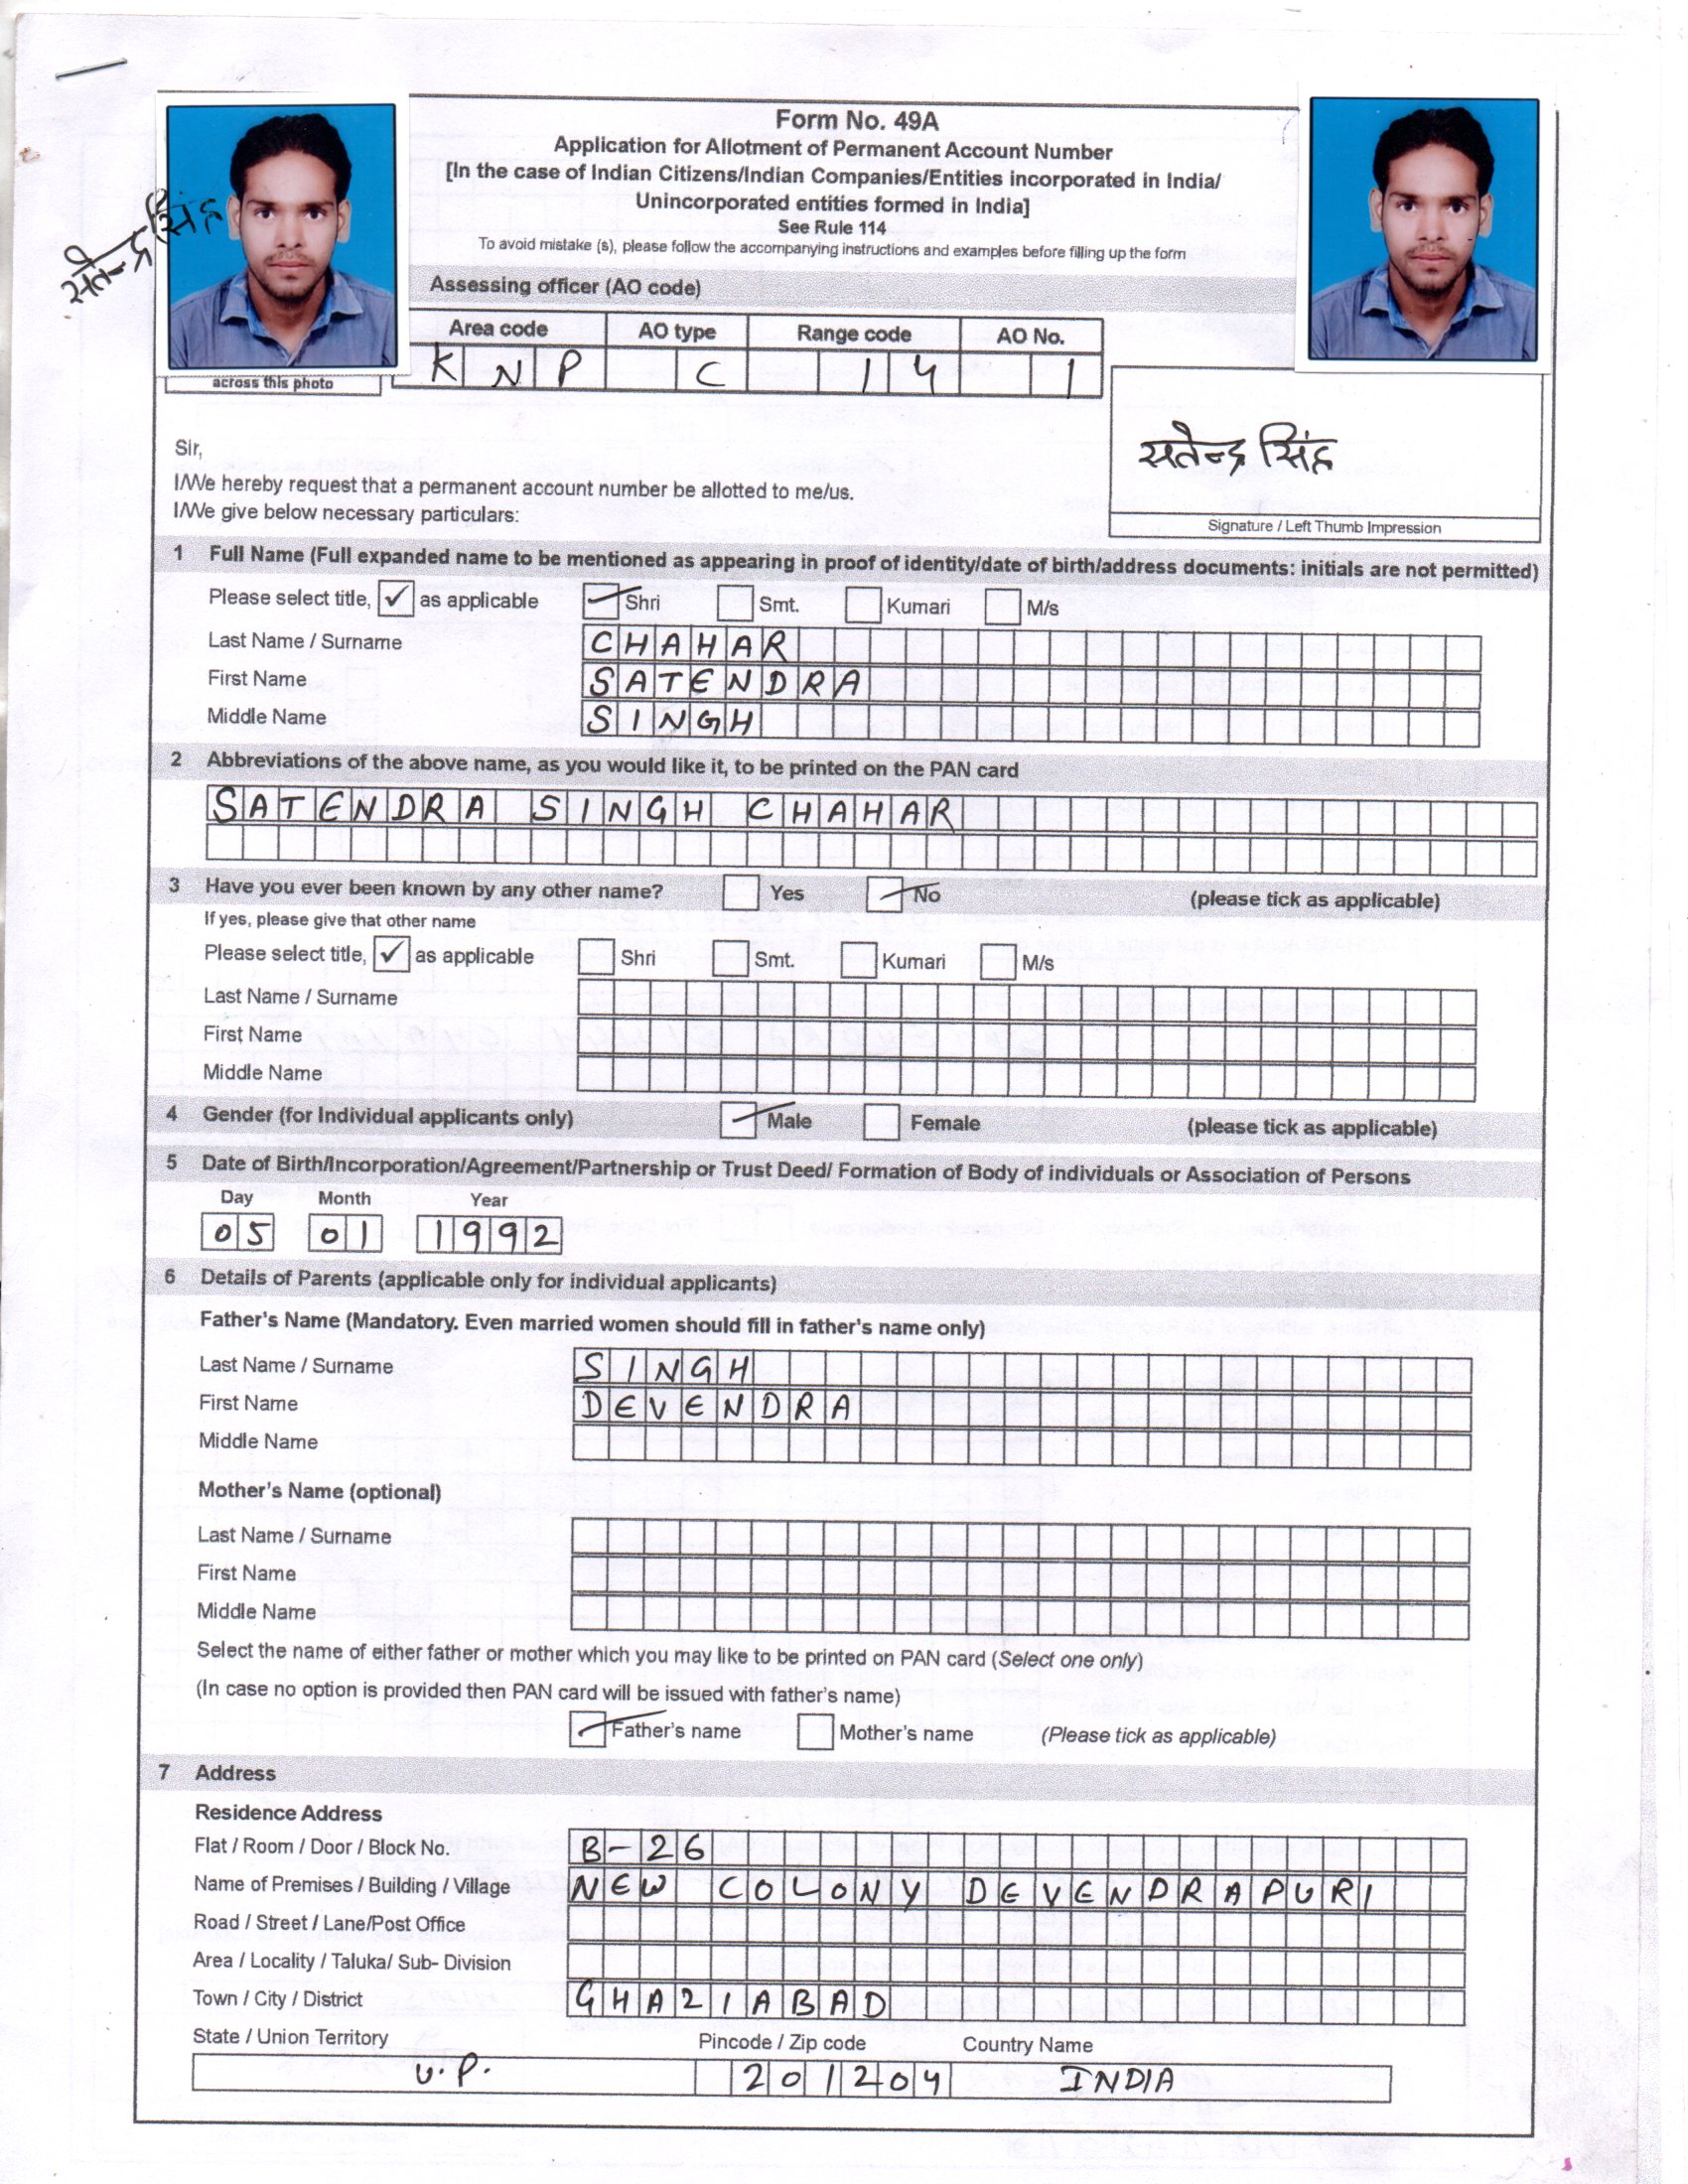 Form No. 49A
Application for Allotment of Permanent Account Number
[In the case of Indian Citizens/Indian Companies/Entities incorporated in India/
Unincorporated entities formed in India]
See Rule 114
To avoid mistake (s), please follow the accompanying instructions and examples before filling up the form
सतेन्द्र सिंह
Assessing officer (AO code)
Area code AO type Range code AO No.
KNP C 14 1
across this photo
सतेन्द्र सिंह
Signature / Left Thumb Impression
Sir,
I/We hereby request that a permanent account number be allotted to me/us.
I/We give below necessary particulars:
1 Full Name (Full expanded name to be mentioned as appearing in proof of identity/date of birth/address documents: initials are not permitted)
Please select title, ✓ as applicable Shri Smt. Kumari M/s
Last Name / Surname CHAHAR
First Name SATENDRA
Middle Name SINGH
2 Abbreviations of the above name, as you would like it, to be printed on the PAN card
SATENDRA SINGH CHAHAR
3 Have you ever been known by any other name? Yes No (please tick as applicable)
If yes, please give that other name
Please select title, ✓ as applicable Shri Smt. Kumari M/s
Last Name / Surname
First Name
Middle Name
4 Gender (for Individual applicants only) Male Female (please tick as applicable)
5 Date of Birth/Incorporation/Agreement/Partnership or Trust Deed/ Formation of Body of individuals or Association of Persons
Day Month Year
05 01 1992
6 Details of Parents (applicable only for individual applicants)
Father's Name (Mandatory. Even married women should fill in father's name only)
Last Name / Surname SINGH
First Name DEVENDRA
Middle Name
Mother's Name (optional)
Last Name / Surname
First Name
Middle Name
Select the name of either father or mother which you may like to be printed on PAN card (Select one only)
(In case no option is provided then PAN card will be issued with father's name)
Father's name Mother's name (Please tick as applicable)
7 Address
Residence Address
Flat / Room / Door / Block No. B-26
Name of Premises / Building / Village NEW COLONY DEVENDRAPURI
Road / Street / Lane/Post Office
Area / Locality / Taluka/ Sub- Division
Town / City / District GHAZIABAD
State / Union Territory Pincode / Zip code Country Name
U.P. 201204 INDIA